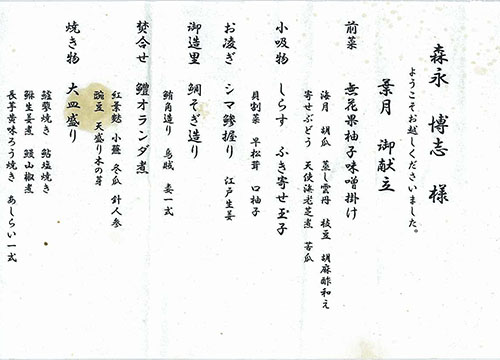 森永 博志 様
ようこそお越しくださいました。
葉月 御献立
前菜 無花果柚子味噌掛け
海月 胡瓜 蒸し雲丹 枝豆 胡麻酢和え
寄せぶどう 天使海老芝煮 苦瓜
小吸物 しらす ふき寄せ玉子
貝割菜 早松茸 口柚子
お凌ぎ シマ鯵握り 江戸生姜
御造里 鯛そぎ造り
鮪角造り 烏賊 妻一式
焚合せ 鱧オランダ煮
紅葉麩 小蕪 冬瓜 針人参
豌豆 天盛り木の芽
焼き物 大皿盛り
鮎塩焼き
生姜煮 鰻山椒煮
長芋黄味ろう焼き あしらい一式